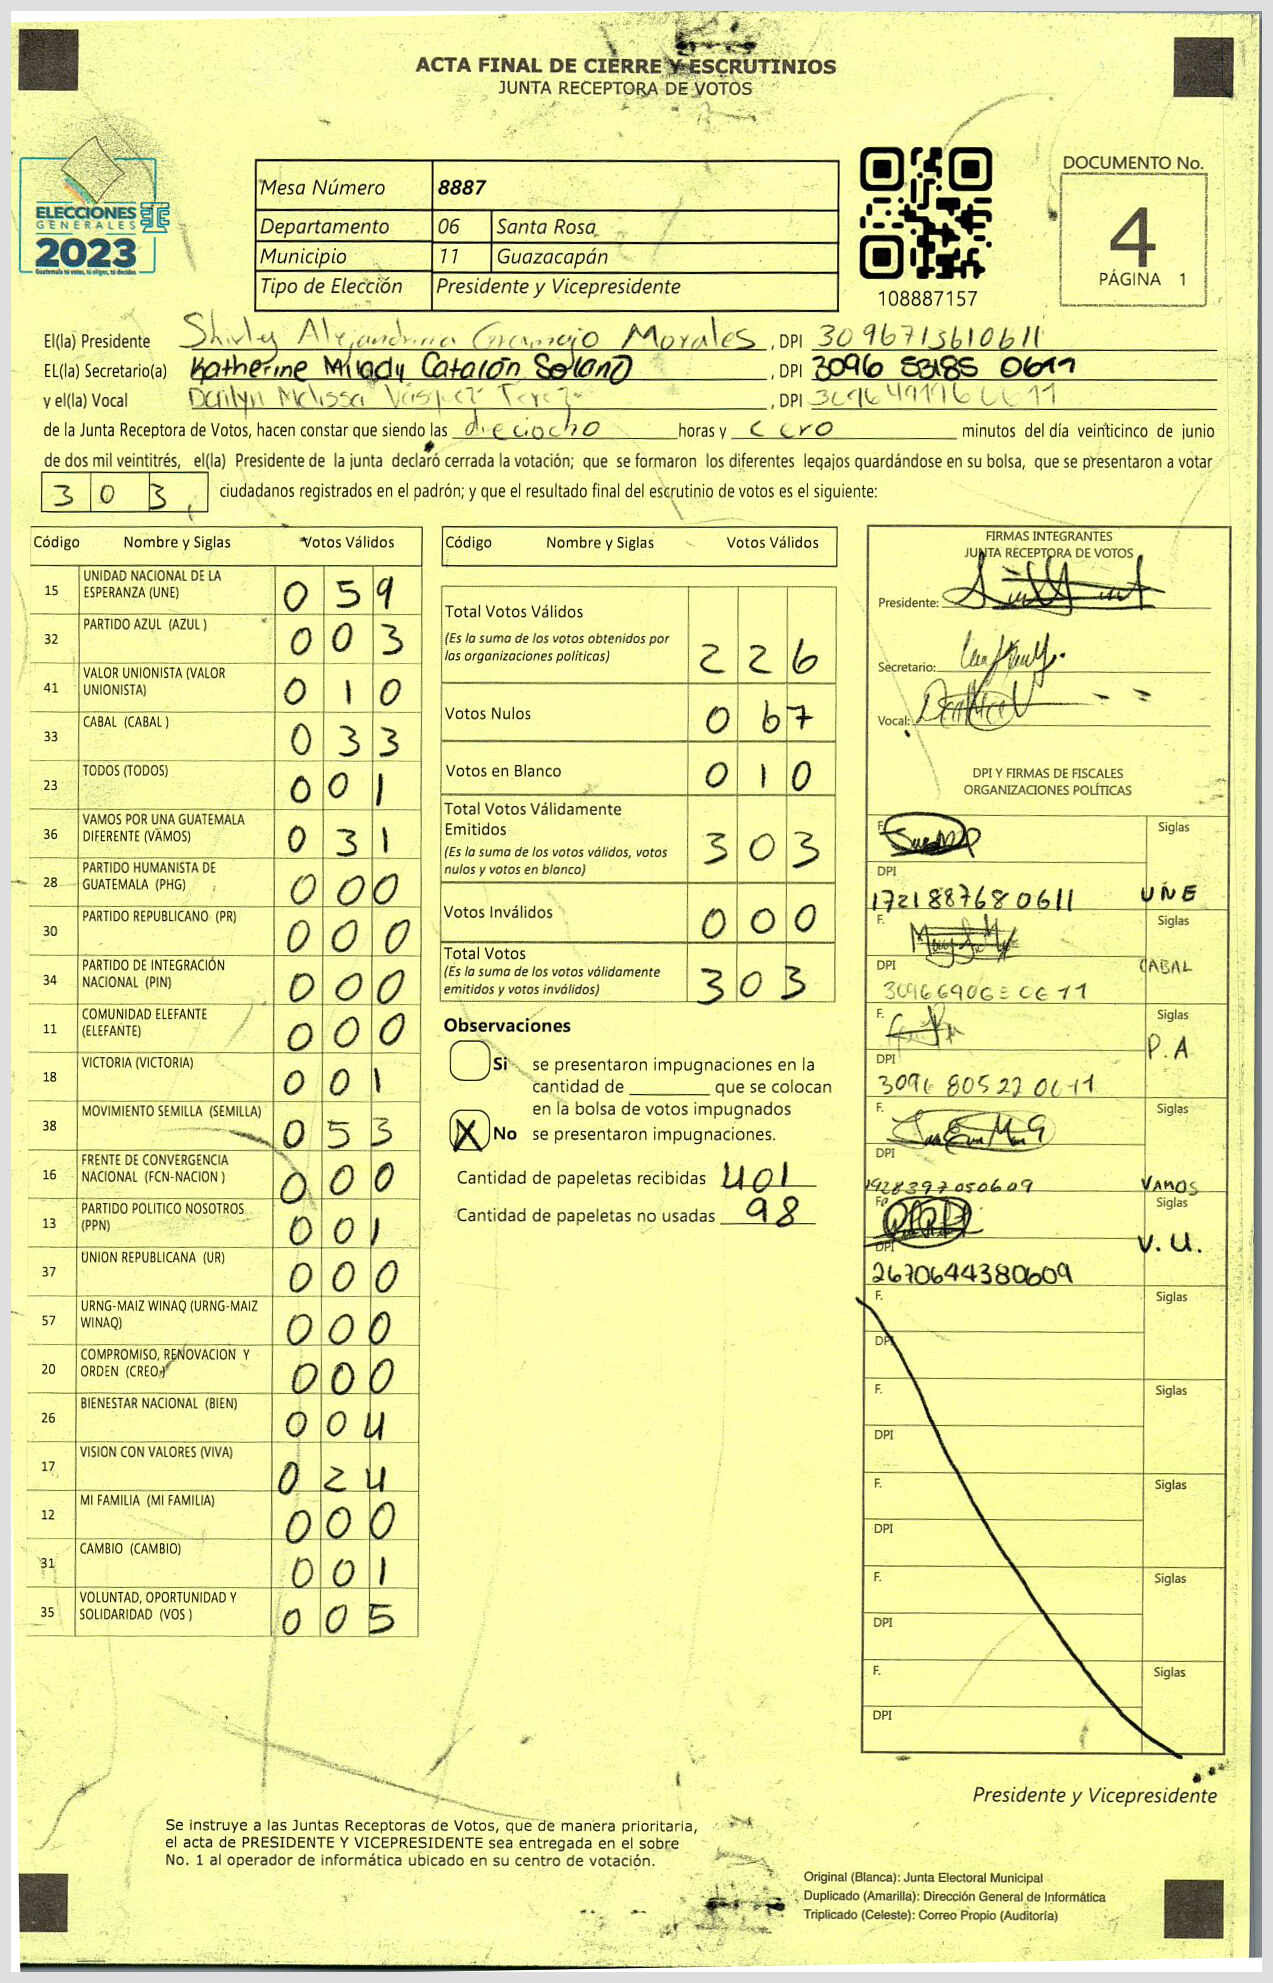 ACTA FINAL DE CIERRE Y ESCRUTINIOS
JUNTA RECEPTORA DE VOTOS
ELECCIONES
GENERALES
2023
Guatemala tú votas, tú eliges, tú decides
Mesa Número 8887
Departamento 06 Santa Rosa
Municipio 11 Guazacapán
Tipo de Elección Presidente y Vicepresidente
108887157
DOCUMENTO No.
4
PÁGINA 1
El(la) Presidente Shirley Alejandrina Gramajo Morales, DPI 3096713610611
EL(la) Secretario(a) Katherine Milady Catalán Solano, DPI 3096 53185 0611
y el(la) Vocal Darilyn Melissa Vásquez Perez, DPI
de la Junta Receptora de Votos, hacen constar que siendo las dieciocho horas y cero minutos del día veinticinco de junio
de dos mil veintitrés, el(la) Presidente de la junta declaró cerrada la votación; que se formaron los diferentes legajos guardándose en su bolsa, que se presentaron a votar
303 ciudadanos registrados en el padrón; y que el resultado final del escrutinio de votos es el siguiente:
Código Nombre y Siglas Votos Válidos
15 UNIDAD NACIONAL DE LA ESPERANZA (UNE) 059
32 PARTIDO AZUL (AZUL ) 003
41 VALOR UNIONISTA (VALOR UNIONISTA) 010
33 CABAL (CABAL ) 033
23 TODOS (TODOS) 001
36 VAMOS POR UNA GUATEMALA DIFERENTE (VAMOS) 031
28 PARTIDO HUMANISTA DE GUATEMALA (PHG) 000
30 PARTIDO REPUBLICANO (PR) 000
34 PARTIDO DE INTEGRACIÓN NACIONAL (PIN) 000
11 COMUNIDAD ELEFANTE (ELEFANTE) 000
18 VICTORIA (VICTORIA) 001
38 MOVIMIENTO SEMILLA (SEMILLA) 053
16 FRENTE DE CONVERGENCIA NACIONAL (FCN-NACION ) 000
13 PARTIDO POLITICO NOSOTROS (PPN) 001
37 UNION REPUBLICANA (UR) 000
57 URNG-MAIZ WINAQ (URNG-MAIZ WINAQ) 000
20 COMPROMISO, RENOVACION Y ORDEN (CREO) 000
26 BIENESTAR NACIONAL (BIEN) 004
17 VISION CON VALORES (VIVA) 024
12 MI FAMILIA (MI FAMILIA) 000
31 CAMBIO (CAMBIO) 001
35 VOLUNTAD, OPORTUNIDAD Y SOLIDARIDAD (VOS ) 005
Código Nombre y Siglas Votos Válidos
Total Votos Válidos 226
(Es la suma de los votos obtenidos por
las organizaciones políticas)
Votos Nulos 067
Votos en Blanco 010
Total Votos Válidamente
Emitidos 303
(Es la suma de los votos válidos, votos
nulos y votos en blanco)
Votos Inválidos 000
Total Votos 303
(Es la suma de los votos válidamente
emitidos y votos inválidos)
Observaciones
Si se presentaron impugnaciones en la
cantidad de ________ que se colocan
en la bolsa de votos impugnados
X No se presentaron impugnaciones.
Cantidad de papeletas recibidas 401
Cantidad de papeletas no usadas 98
FIRMAS INTEGRANTES
JUNTA RECEPTORA DE VOTOS
Presidente:
Secretario:
Vocal:
DPI Y FIRMAS DE FISCALES
ORGANIZACIONES POLÍTICAS
F. Siglas
DPI
1721887680611 UNE
F. Siglas
DPI CABAL
F. Siglas
DPI P.A
3096 80522 0611
F. Siglas
DPI
1928397050609 VAMOS
F. Siglas
DPI V.U.
2670644380609
F. Siglas
DPI
F. Siglas
DPI
F. Siglas
DPI
F. Siglas
DPI
F. Siglas
DPI
Presidente y Vicepresidente
Se instruye a las Juntas Receptoras de Votos, que de manera prioritaria,
el acta de PRESIDENTE Y VICEPRESIDENTE sea entregada en el sobre
No. 1 al operador de informática ubicado en su centro de votación.
Original (Blanca): Junta Electoral Municipal
Duplicado (Amarilla): Dirección General de Informática
Triplicado (Celeste): Correo Propio (Auditoría)